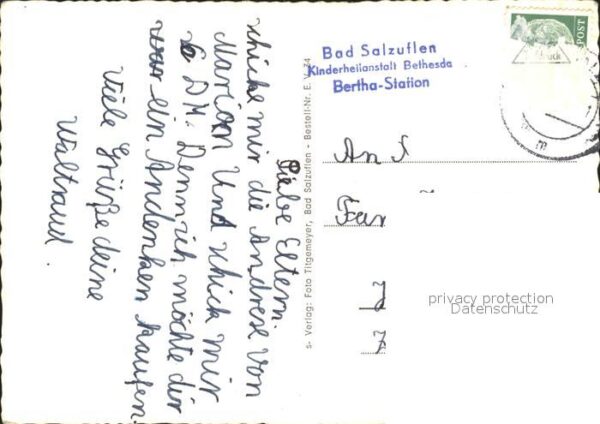 Liebe Eltern.
schicke mir die Andrese von
Marion Und schick mir
6 DM. Denn ich möchte dir
ein Andenken kaufen
Viele Grüße deine
Waltraud.
s- Verlag: Foto Titgemeyer, Bad Salzuflen - Bestell-Nr. E. V. 74
Bad Salzuflen
Kinderheilanstalt Bethesda
Bertha-Station
POST
An
Fam
privacy protection
Datenschutz